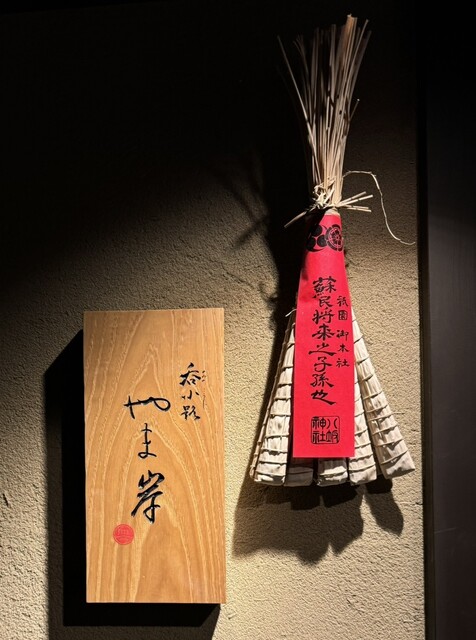 呑小路
やま岸
祇園 御本社
蘇民将来之子孫也
八坂
神社